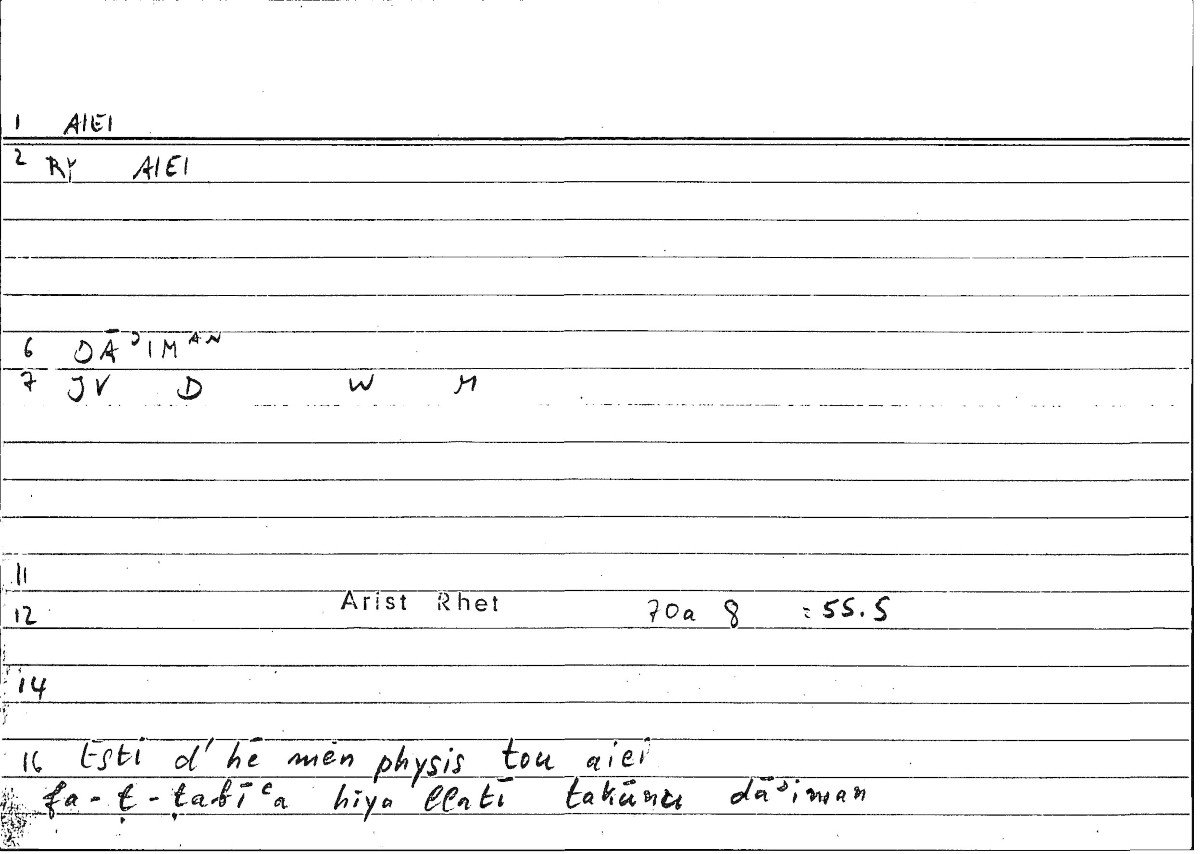 1 AIEI
2 RY AIEI
6 DĀʾIMᴬᴺ
7 JV D W M
11
12 Arist Rhet 70a 8 = 55.5
14
16 Esti d' hē mèn physis tou aiei
fa-ṭ-ṭabīᶜa hiya llatī takūnu dāʾiman